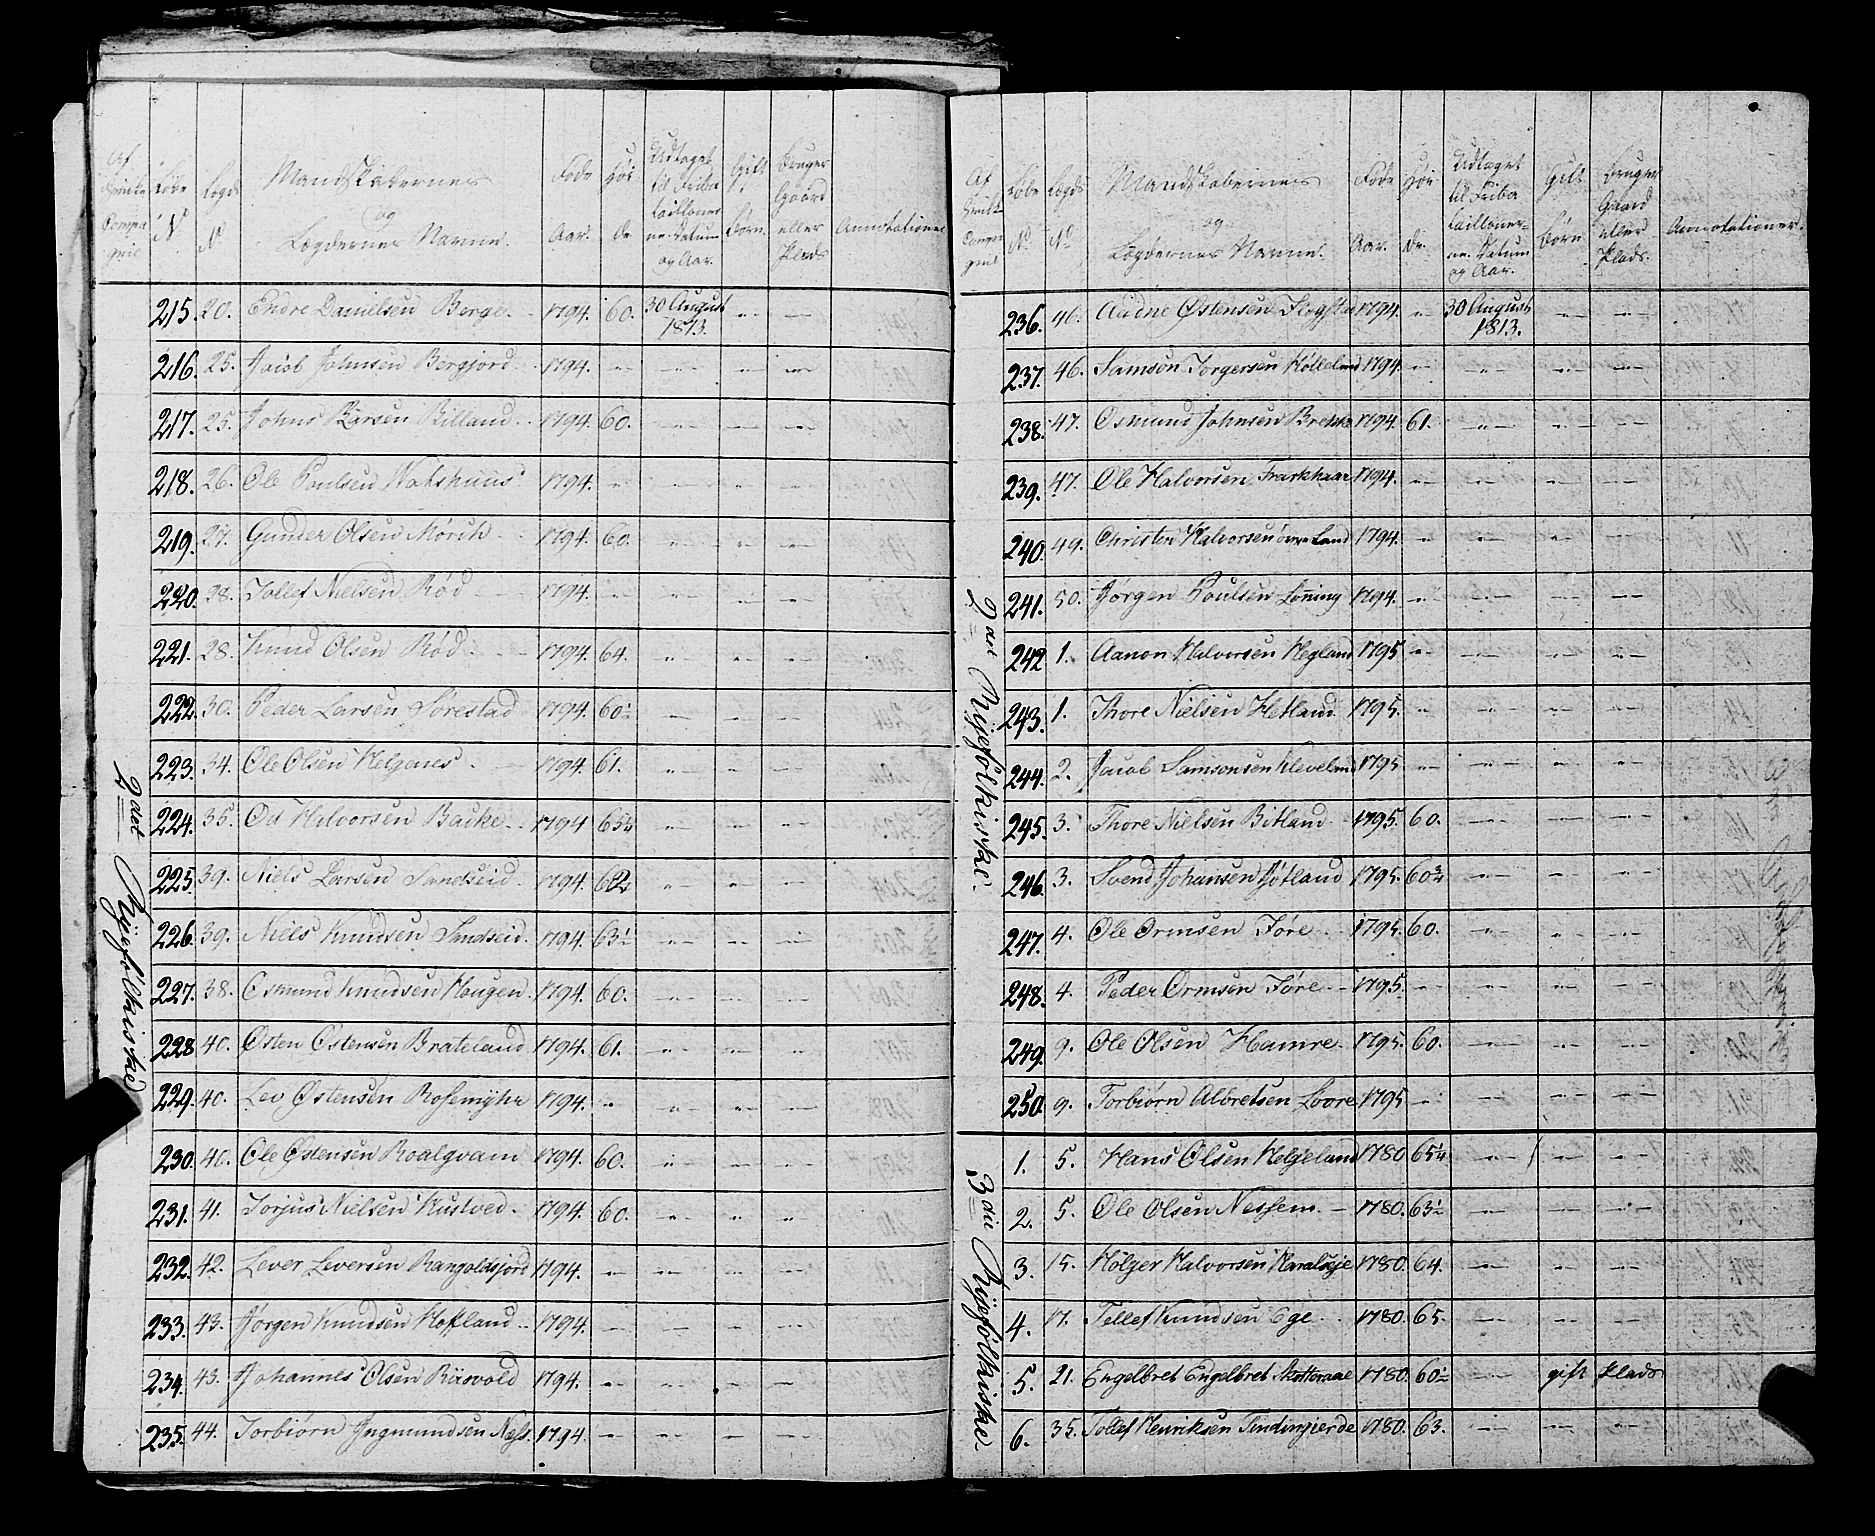 Af
Compa
gnie
Løbe
No
Lægds
No
Mandskabernes
og
Lægdernes Navne.
Føde
Aar.
Høi
de
Udtaget
til Friba
tailloner
ne. Datum
og Aar.
Gift
Børn.
Bruger
Gaard
eller
Plads
Annotationer
2det Rijefølkiske
215. 20. Endre Danielsen Berge. 1794. 60. 30 August 1813. -"- -"-
216. 25. Jacob Johnsen Bergjord. 1794. -"- -"- -"- -"-
217. 25. Johns Birsen Billand. 1794. 60. -"- -"- -"-
218. 26. Ole Poulsen 1794. -"- -"- -"- -"-
219. 27. Gunder Olsen Mørch 1794. 60. -"- -"- -"-
220. 28. Tollef Nielsen Rød 1794. -"- -"- -"- -"-
221. 28. Knud Olsen Rød 1794. 64. -"- -"- -"-
222. 30. Peder Larsen Sørestad 1794. 60½ -"- -"- -"-
223. 34. Ole Olsen Helgenes 1794. 61. -"- -"- -"-
224. 35. Od Halvorsen Backe. 1794 65¼ -"- -"- -"-
225. 39. Niels Larsen Sandseid 1794. 62 -"- -"- -"-
226. 39. Niels Knudsen Sandseid. 1794. 63½ -"- -"- -"-
227. 38. Osmund Knudsen Haugen. 1794. 60. -"- -"- -"-
228. 40. Østen Østensen Brateland 1794. 61. -"- -"- -"-
229. 40. Lev Østensen Rosemyhr 1794. -"- -"- -"- -"-
230. 40. Ole Østensen Roalgvam 1794. 60. -"- -"- -"-
231. 41. Torjus Nielsen Kustved. 1794. 60. -"- -"- -"-
232. 42. Lever Leversen Rangoldsjord 1794. -"- -"- -"- -"-
233. 43. Jørgen Knudsen Hofland. 1794. -"- -"- -"- -"-
234. 43. Johannes Olsen Riisvold 1794. -"- -"- -"- -"-
235. 44. Torbiørn Jngmundsen Næss. 1794. -"- -"- -"- -"-
Af
Compa
gnie
Løbe
No
Lægds
No
Mandskabernes
og
Lægdernes Navne.
Føde
Aar.
Høi
de.
Udtaget
til Friba
tailloner-
ne. Datum
og Aar.
Gift
Børn
Bruger
Gaard
eller
Plads.
Annotationer.
2det Rijefølkiske.
236. 46. Aadne Østensen Flogstad 1794. -"- 30 August 1813. -"- -"-
237. 46. Samson Torgersen Hølleland 1794. -"- -"- -"- -"-
238. 47. Osmund Johnsen 1794. 61. -"- -"- -"-
239. 47. Ole Halvorsen Frarkhaar 1794. -"- -"- -"- -"-
240. 49. Christen Halvorsen øvre Land 1794. -"- -"- -"- -"-
241. 50. Jørgen Poulsen Lønning 1794. -"- -"- -"- -"-
242 1. Aanon Halvorsen Hegland 1795 -"- -"- -"- -"-
243. 1. Thore Nielsen Hetland 1795. -"- -"- -"- -"-
244. 2. Jacob Samsonsen Kleveland 1795 -"- -"- -"- -"-
245. 3. Thore Nielsen Bitland 1795. 60. -"- -"- -"-
246. 3. Svend Johansen Jøtland 1795. 60¾ -"- -"- -"-
247. 4. Ole Ormsen Føre. 1795. 60. -"- -"- -"-
248. 4. Peder Ormsen Føre. 1795. -"- -"- -"- -"-
249. 9. Ole Olsen Hamre. 1795. 60. -"- -"- -"-
250. 9. Torbiørn Albretsen Loore 1795 -"- -"- -"- -"-
3die Rijefølkiske.
1. 5. Hans Olsen Helgeland 1780 65¼ -"- / -"-
2. 5. Ole Olsen Nessem. 1780. 63½ -"- -"- -"-
3. 15. Hølger Halvorsen Haralseje 1780. 64. -"- -"- -"-
4. 17. Tellef Knudsen Ege. 1780. 65. -"- -"- -"-
5. 21. Engelbret Engelbret 1780. 60½ -"- gift Plads
6. 35. Tollef Henriksen Tindingierde 1780. 63. -"- -"- -"-